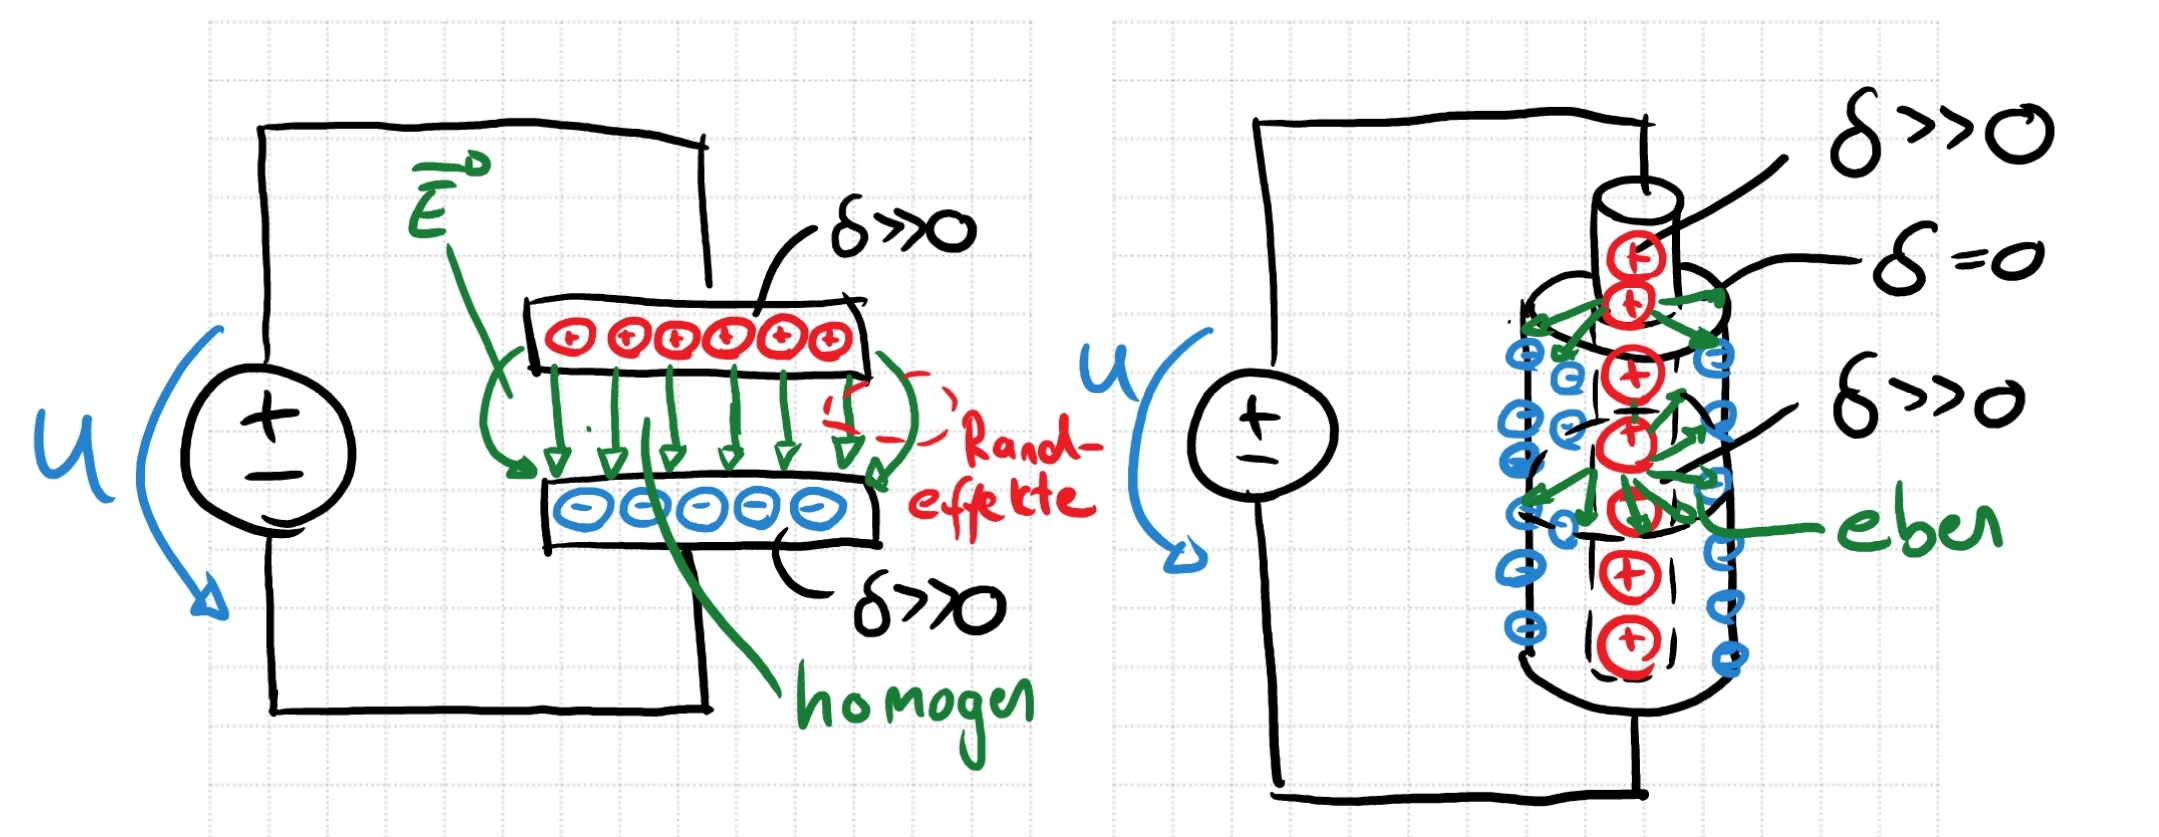 E
δ>>0
U
+
−
+ + + + + +
Rand-
effekte
− − − − −
δ>>0
homogen
δ>>0
δ=0
U
+
−
δ>>0
eben